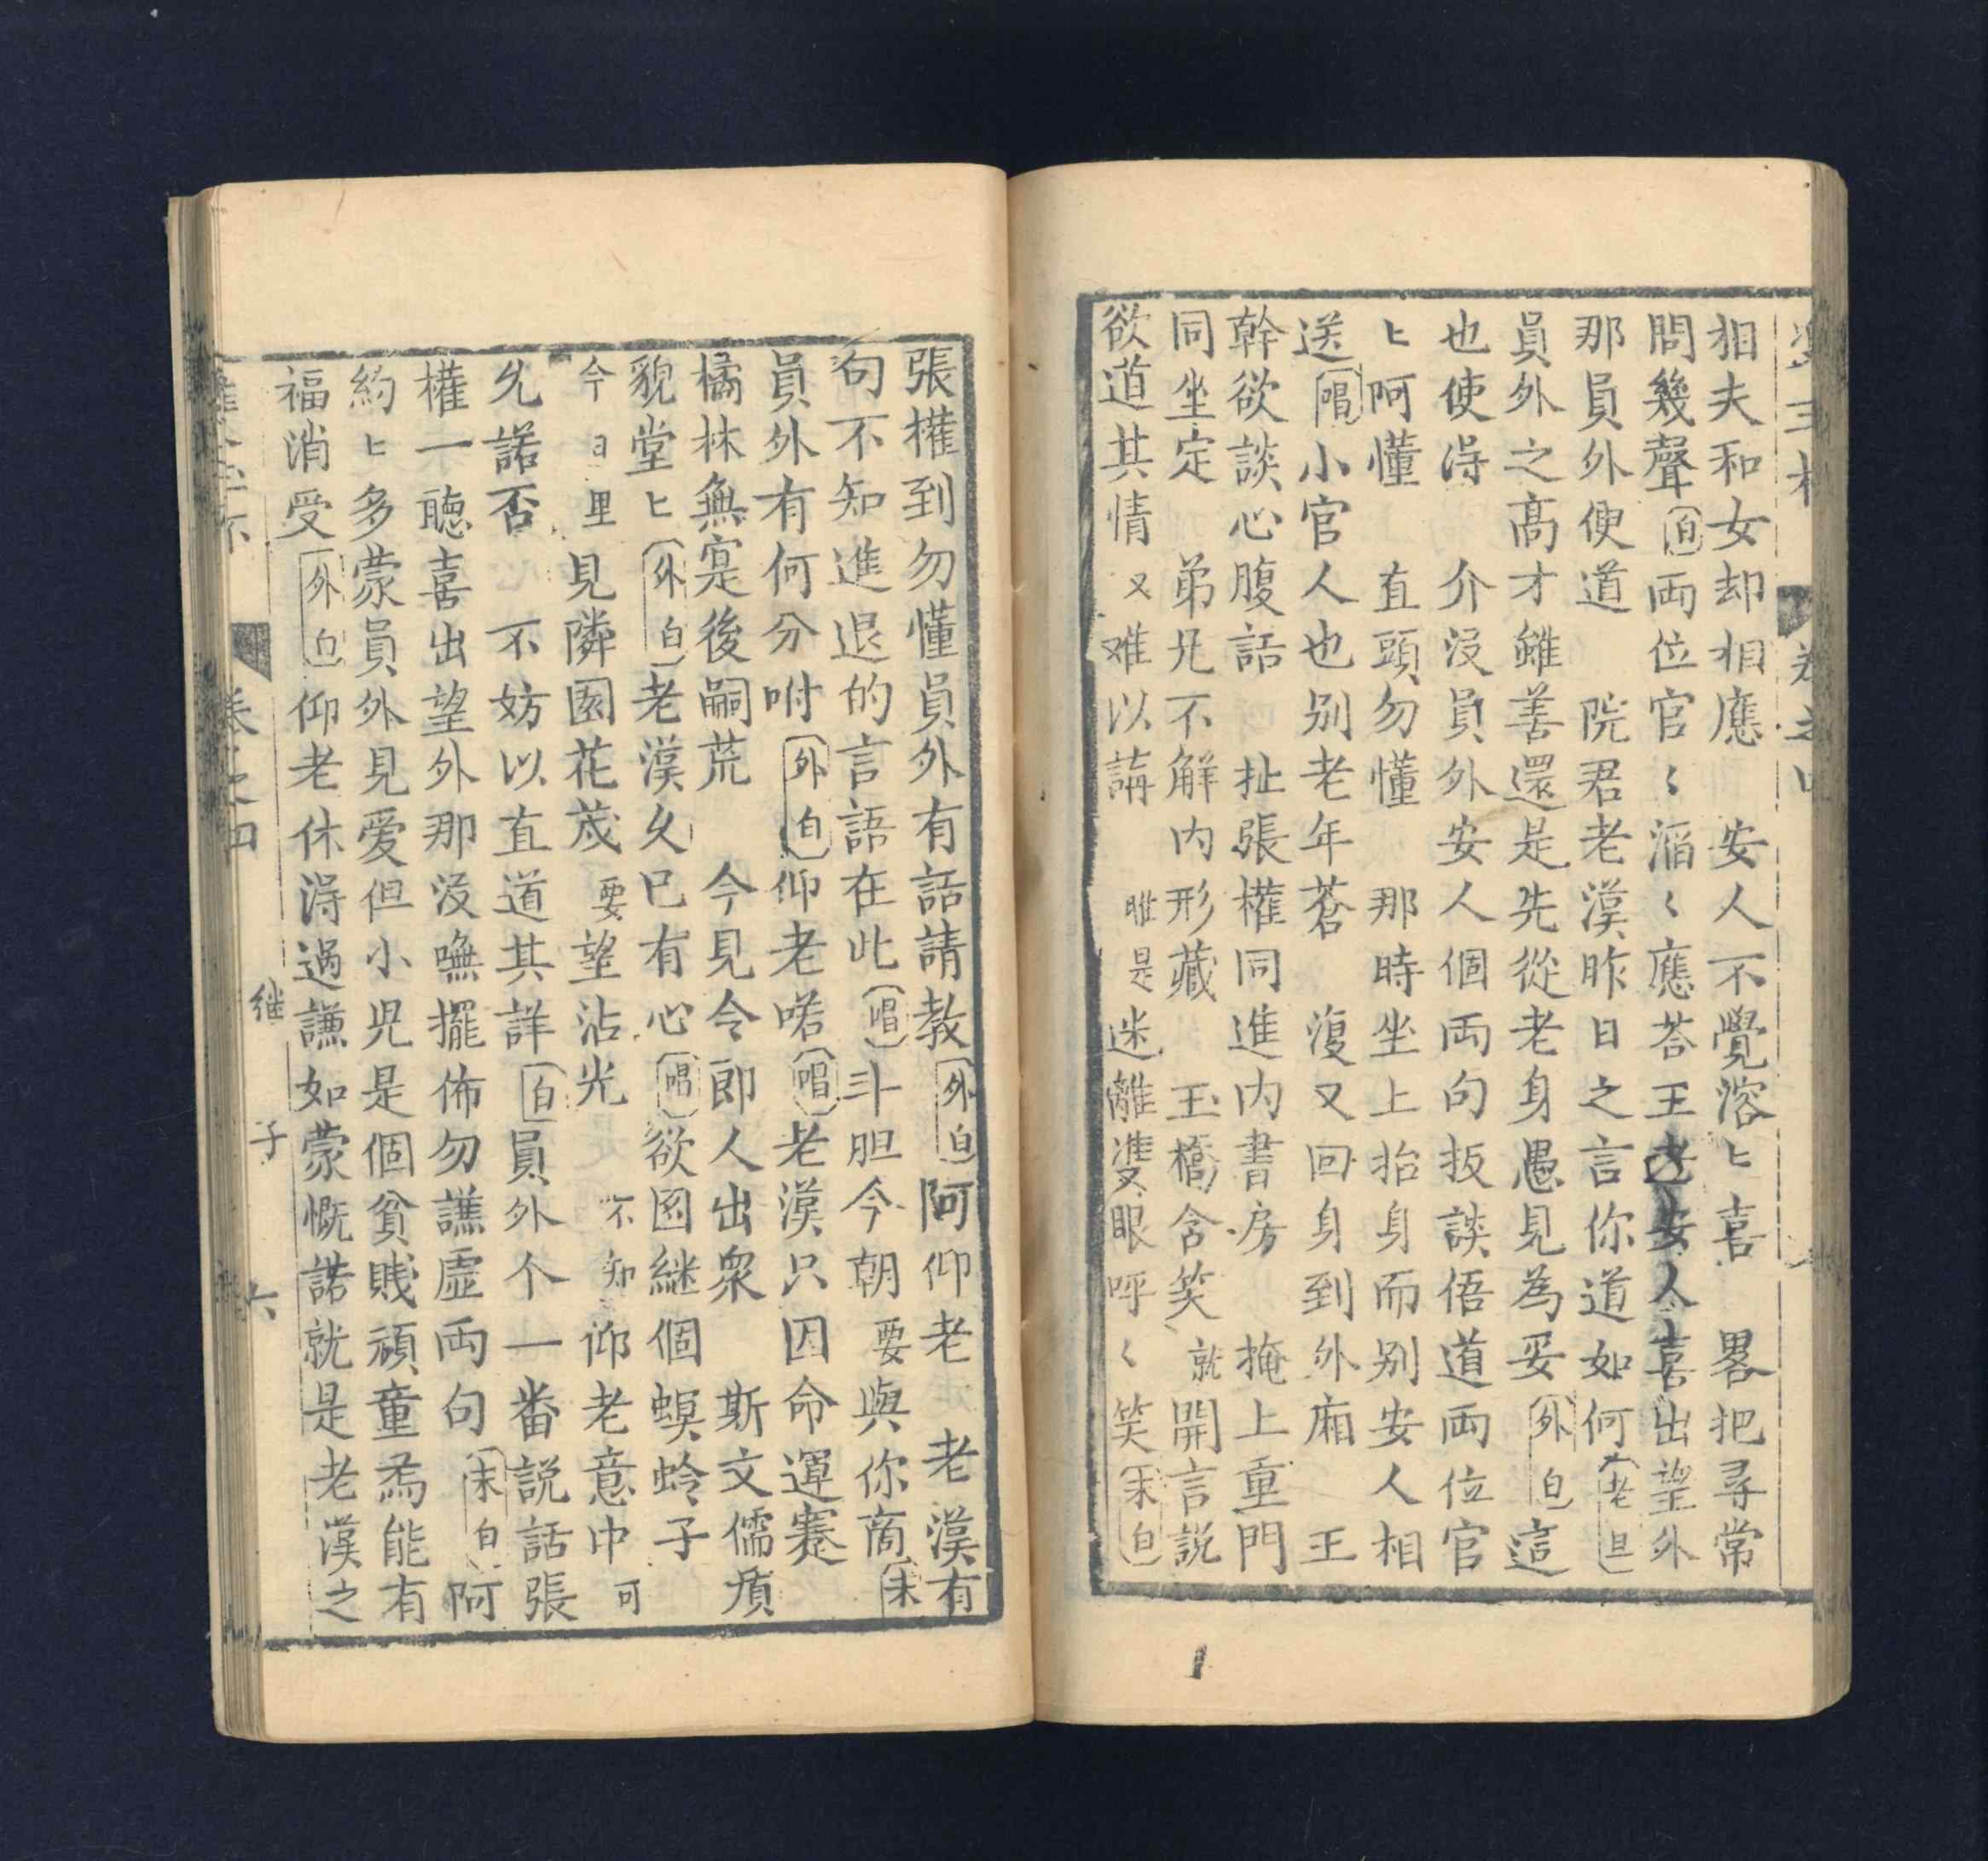 相夫和女却相應　安人不覺溶ヒ喜　畧把尋常
問幾聲(白)両位官〻滔〻應荅王老安人喜出望外
那員外便道　院君老漢昨日之言你道如何(老旦)
員外之髙才雖善還是先從老身愚見為妥(外白)這
也使淂　介沒員外安人個両句扳談俉道両位官
ヒ阿懂　直頭勿懂　那時坐上抬身而别安人相
送(唱)小官人也别老年蒼　復又回身到外廂　王
幹欲談心腹話　扯張權同進内書房　掩上重門
同坐定　弟兄不解内形藏　玉橋含笑就開言説
欲道其情又难以講　唯是迷離雙眼呼〻笑(末白)
張權到勿懂員外有話請教(外白)阿仰老　老漢有
句不知進退的言語在此(唱)斗胆今朝要與你商(末)
員外有何分咐(外白)仰老喏(唱)老漢只因命運蹇
橘林無寔後嗣荒　今見令郎人出衆　斯文儒
貌堂ヒ(外白)老漢久已有心(唱)欲圖継個螟蛉子
今日里見隣園花茂要望沾光　不知仰老意中可
允諾否　不妨以直道其詳(白)員外个一番説話張
權一聽喜出望外那沒嘸擺佈勿譙虚両句(末白)阿
約ヒ多蒙員外見爱但小児是個貧賤頑童焉能有
福消受(外白)仰老休淂過謙如蒙慨諾就是老漢之
卷之四
継
子
六